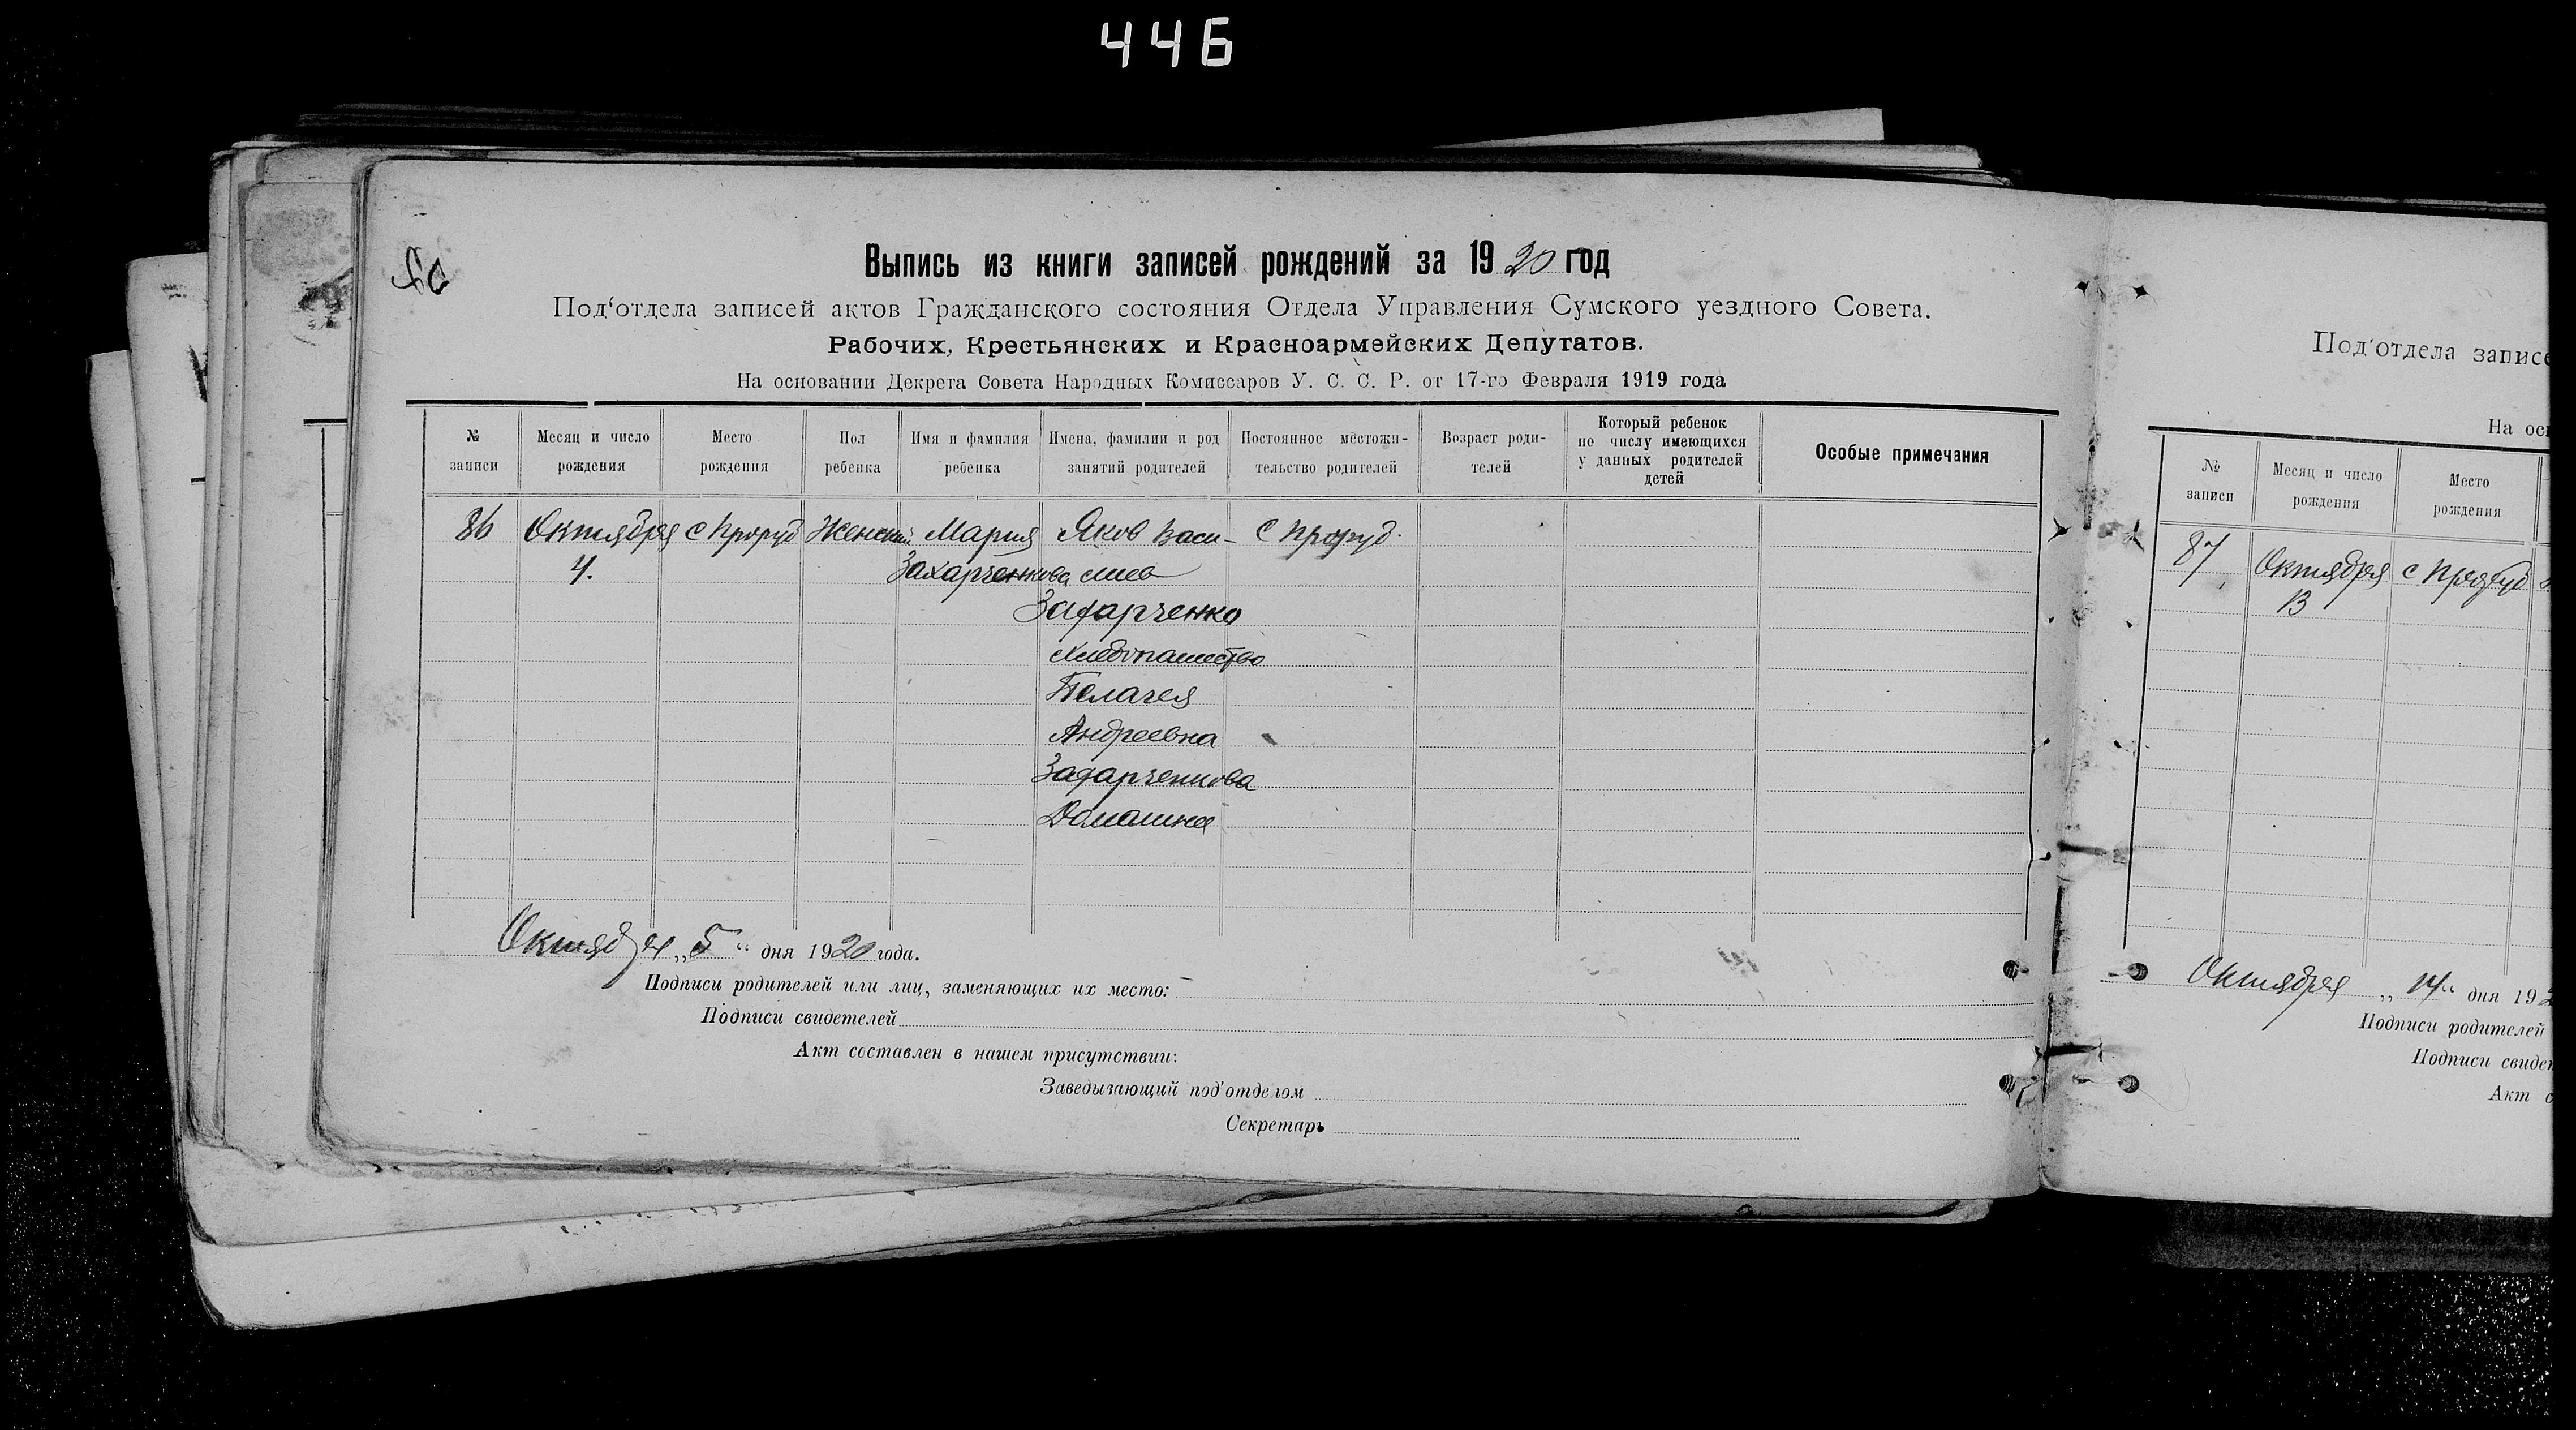 446
Выпись из книги записей рождений за 1920 год
Под‘отдела записей актов Гражданского состояния Отдела Управления Сумского уездного Совета.
Рабочих, Крестьянских и Красноармейских Депутатов.
На основании Декрета Совета Народных Комиссаров У. С. С. Р. от 17-го Февраля 1919 года
№ записи
Месяц и число рождения
Место рождения
Пол ребенка
Имя и фамилия ребенка
Имена, фамилии и род занятий родителей
Постоянное местожительство родителей
Возраст родителей
Который ребенок по числу имеющихся у данных родителей детей
Особые примечания
86 Октября с Проруб Женский Мария Яков Васи- с Проруб.
4. Захарченкова лиев
Захарченко
Хлебопашество
Пелагея
Андреевна
Захарченкова
Домашнее
Октября „5“ дня 1920 года.
Подписи родителей или лиц, заменяющих их место:
Подписи свидетелей
Акт составлен в нашем присутствии:
Заведывающий под'отделом
Секретарь
Под'отдела записе
На ос
№ записи
Месяц и число рождения
Место рождения
87 Октября с Проруб
13
Октября „14“ дня 192
Подписи родителей
Подписи свидет
Акт с